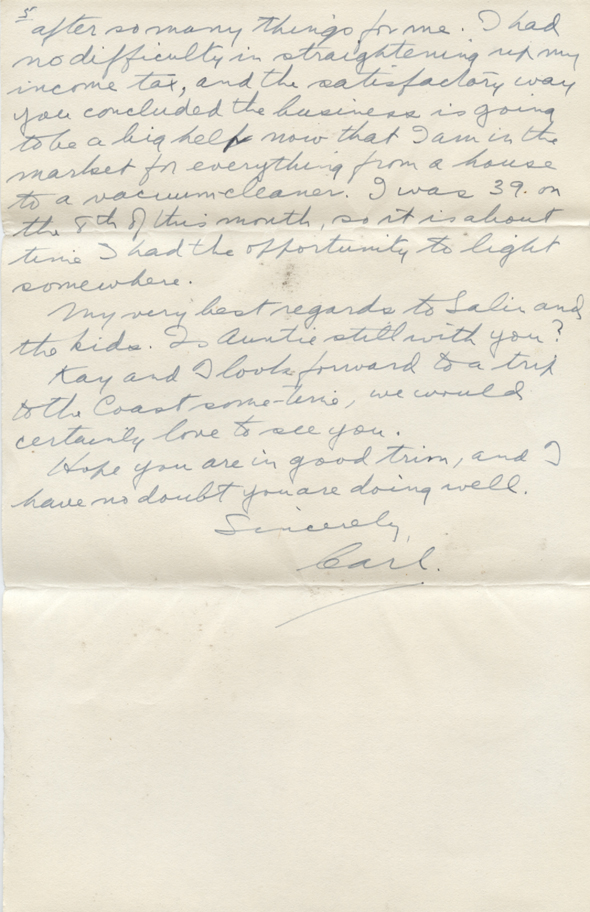 5
after so many things for me. I had
no difficulty in straightening up my
income tax, and the satisfactory way
you concluded the business is going
to be a big help now that I am in the
market for everything from a house
to a vacuum-cleaner. I was 39. on
the 8th of this month, so it is about
time I had the opportunity to light
somewhere.
My very best regards to and
the kids. Is Auntie still with you?
Kay and I look forward to a trip
to the Coast some-time, we would
certainly love to see you.
Hope you are in good trim, and I
have no doubt you are doing well.
Sincerely,
Carl.